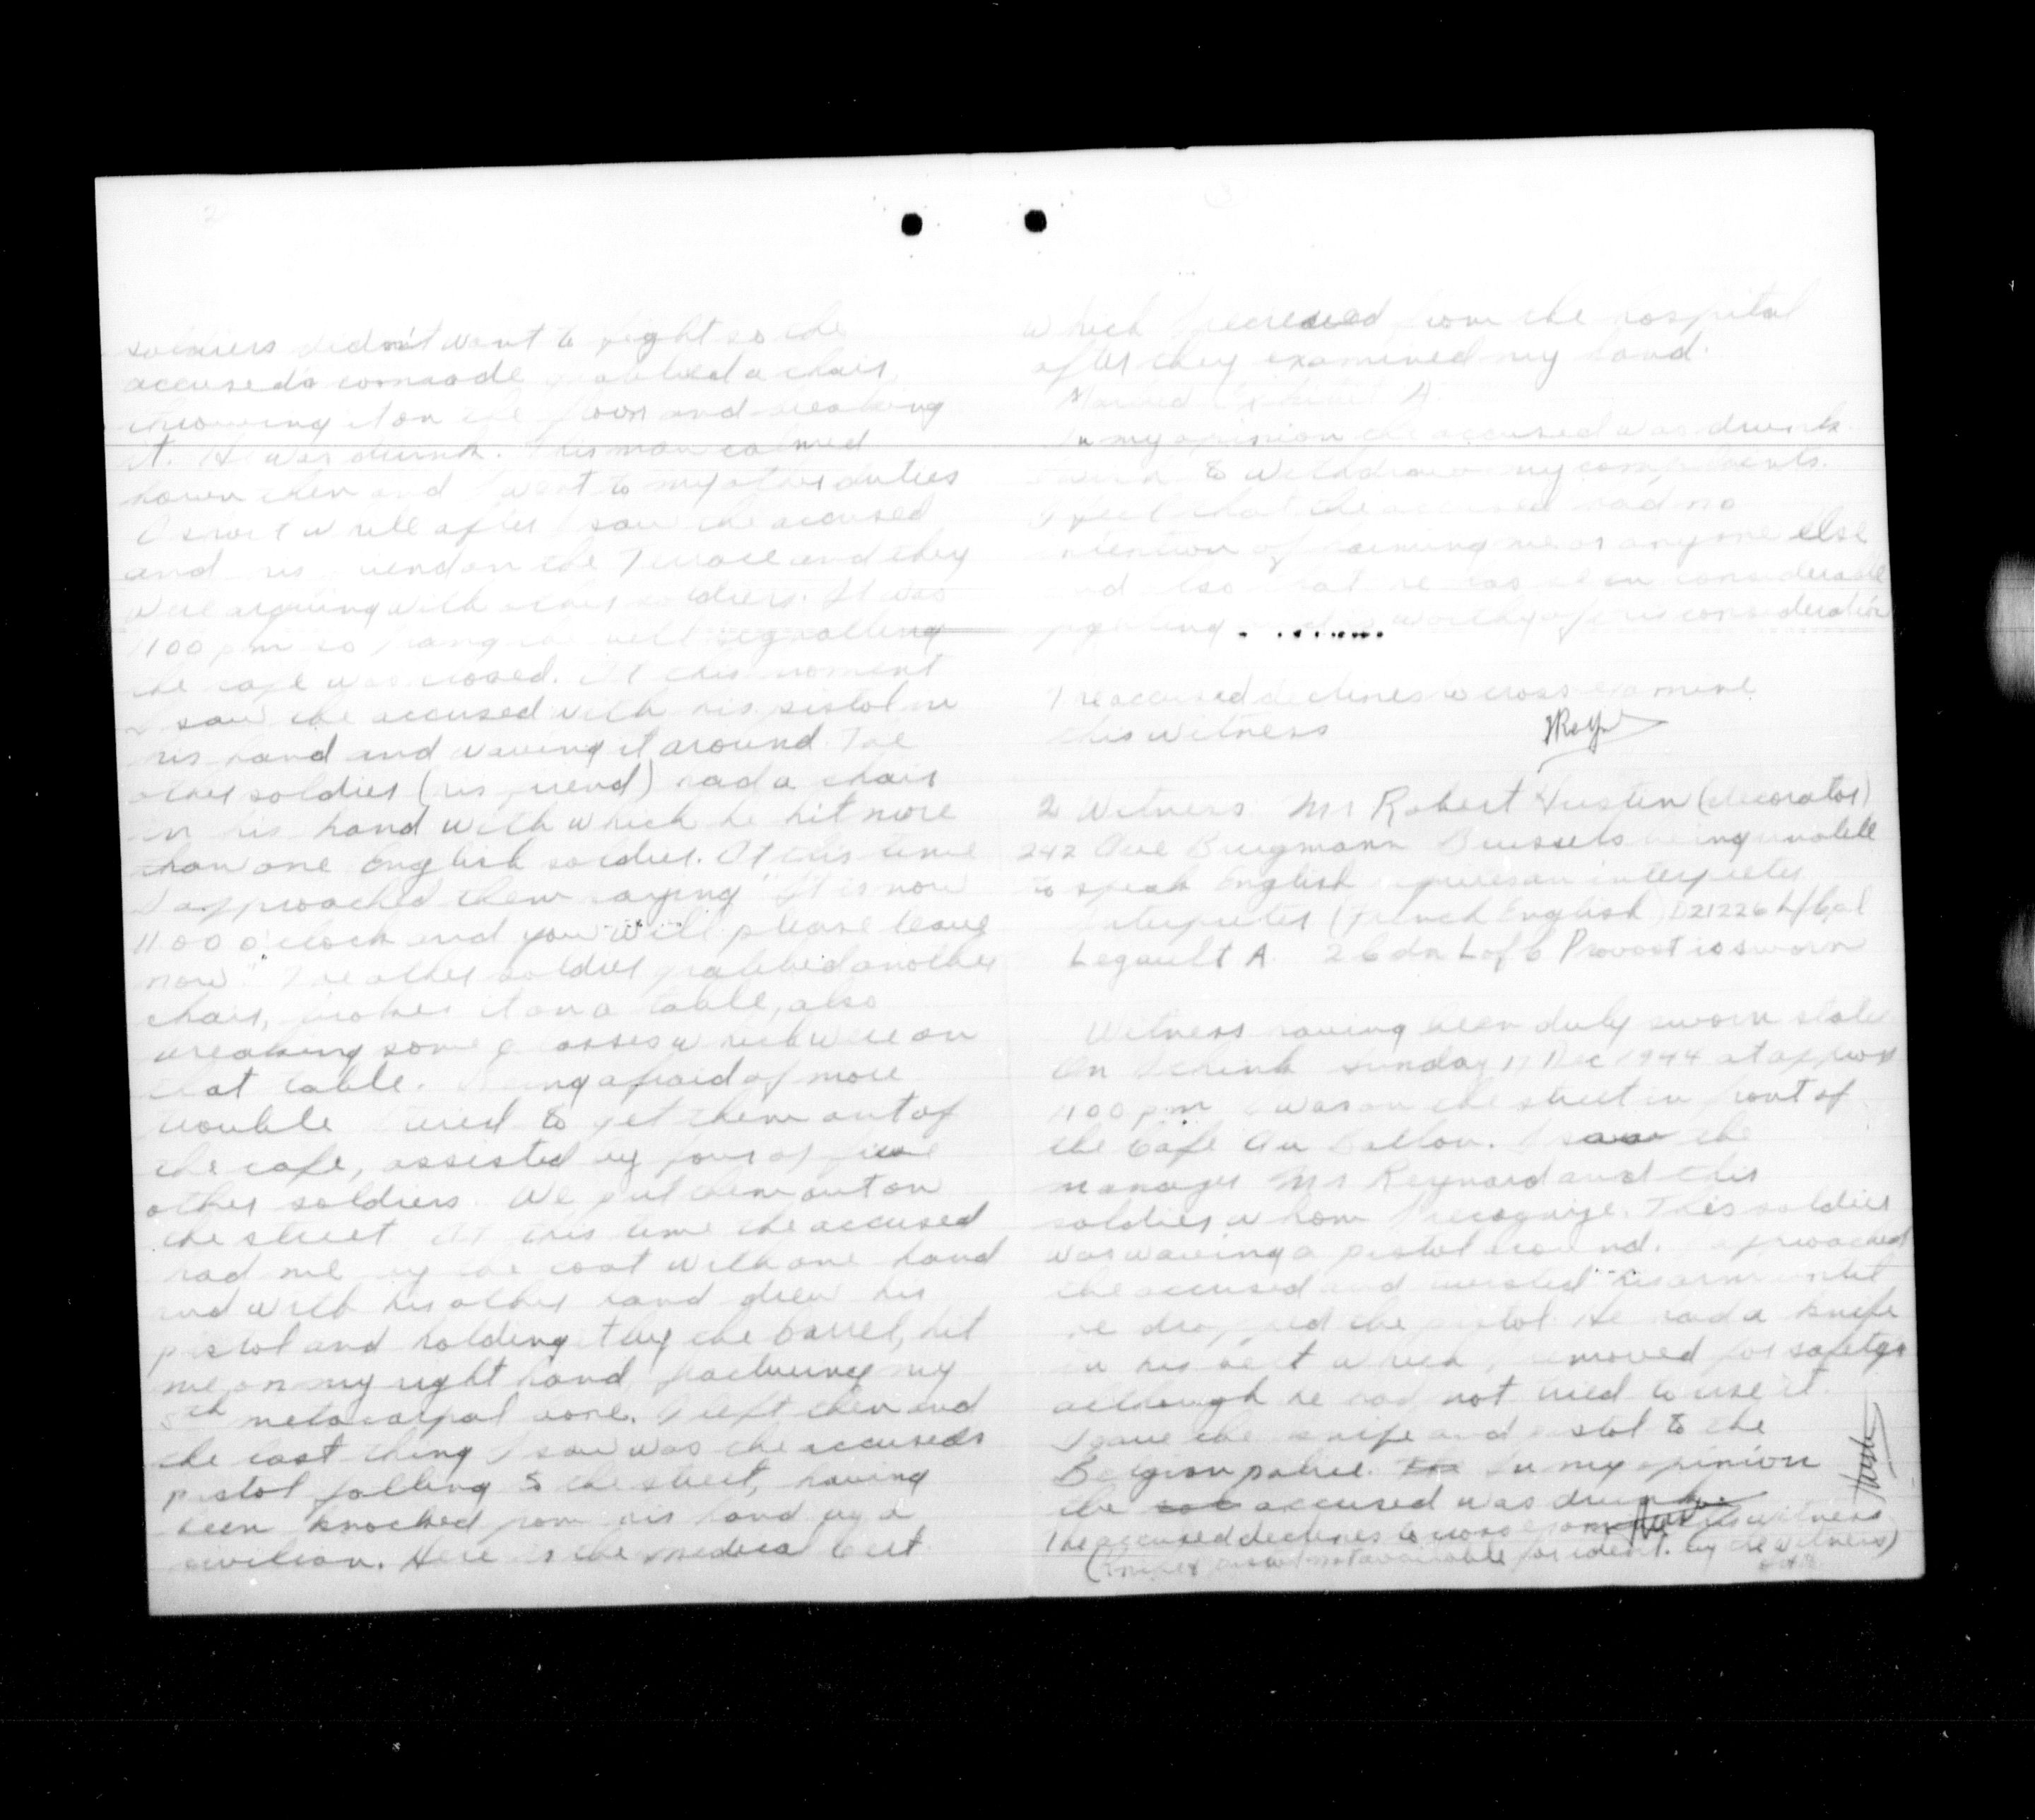 2
soldiers didn't want to fight so the
accused's comrade grabbed a chair
throwing it on the floor and breaking
it. He was drunk. This man calmed
down then and I went to my other duties
A short while after I saw the accused
and his friend on the Terrace and they
were arguing with other soldiers. It was
1100 pm so I rang the bell signalling
the cafe was closed. At this moment
I saw the accused with his pistol in
his hand and waving it around. The
other soldier (his friend) had a chair
in his hand with which he hit more
than one English soldier. At this time
I approached them saying "It is now
11.00 o'clock and you will please leave
now." The other soldier grabbed another
chair, broke it on a table, also
breaking some glasses which were on
that table. Being afraid of more
trouble I tried to get them out of
the cafe, assisted by four or five
other soldiers. We put them out on
the street. At this time the accused
had me by the coat with one hand
and with his other hand drew his
pistol and holding it by the barrel, hit
me on my right hand fracturing my
5th metacarpal bone. I left then and
the last thing I saw was the accuseds
pistol falling to the street, having
been knocked from his hand by a
civilian. Here is the medical cert
3
which I received from the hospital
after they examined my hand.
Marked Exhibit A.
In my opinion the accused was drunk.
I wish to withdraw my complaints.
I feel that the accused had no
intention of harming me or anyone else
and also that he has seen considerable
fighting and is worthy of consideration
The accused declines to cross examine
this witness
2 Witness Mr Robert Husten (decorator)
242 Ave Brugmann Brussels being unable
to speak English requires an interpreter
Interpreter (French English) D21226 L/Cpl
Legault A 2 Cdn L of C Provost is sworn
Witness having been duly sworn states
On I think Sunday 17 Dec 1944 at approx
1100 pm I was on the street in front of
the Cafe Au Ballon. I saw the
manager Mr Reynard and this
soldier whom I recognize. This soldier
was waving a pistol around. I approached
the accused and twisted his arm until
he dropped the pistol. He had a knife
in his belt which I removed for safety
although he had not tried to use it.
I gave the knife and pistol to the
Belgian police. The In my opinion
the accused was drunk.
The accused declines to cross examine this witness
(Knife & pistol not available for ident. by the witness)